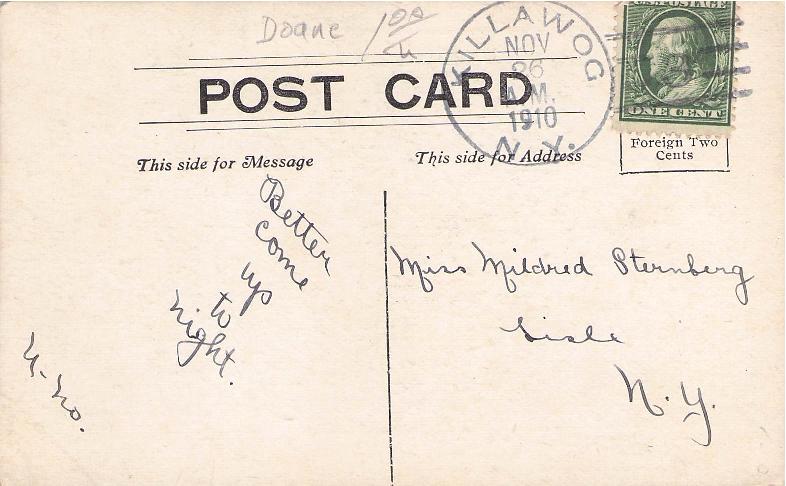 Doane 1 00/
U.S. POSTAGE
KILLAWOG
NOV
26
A.M.
1910
N.Y.
ONE CENT
POST CARD
Foreign Two
Cents
This side for Message
This side for Address
Better
come
up
to
night.
U-No.
Miss Mildred Sternberg
Lisle
N.Y.